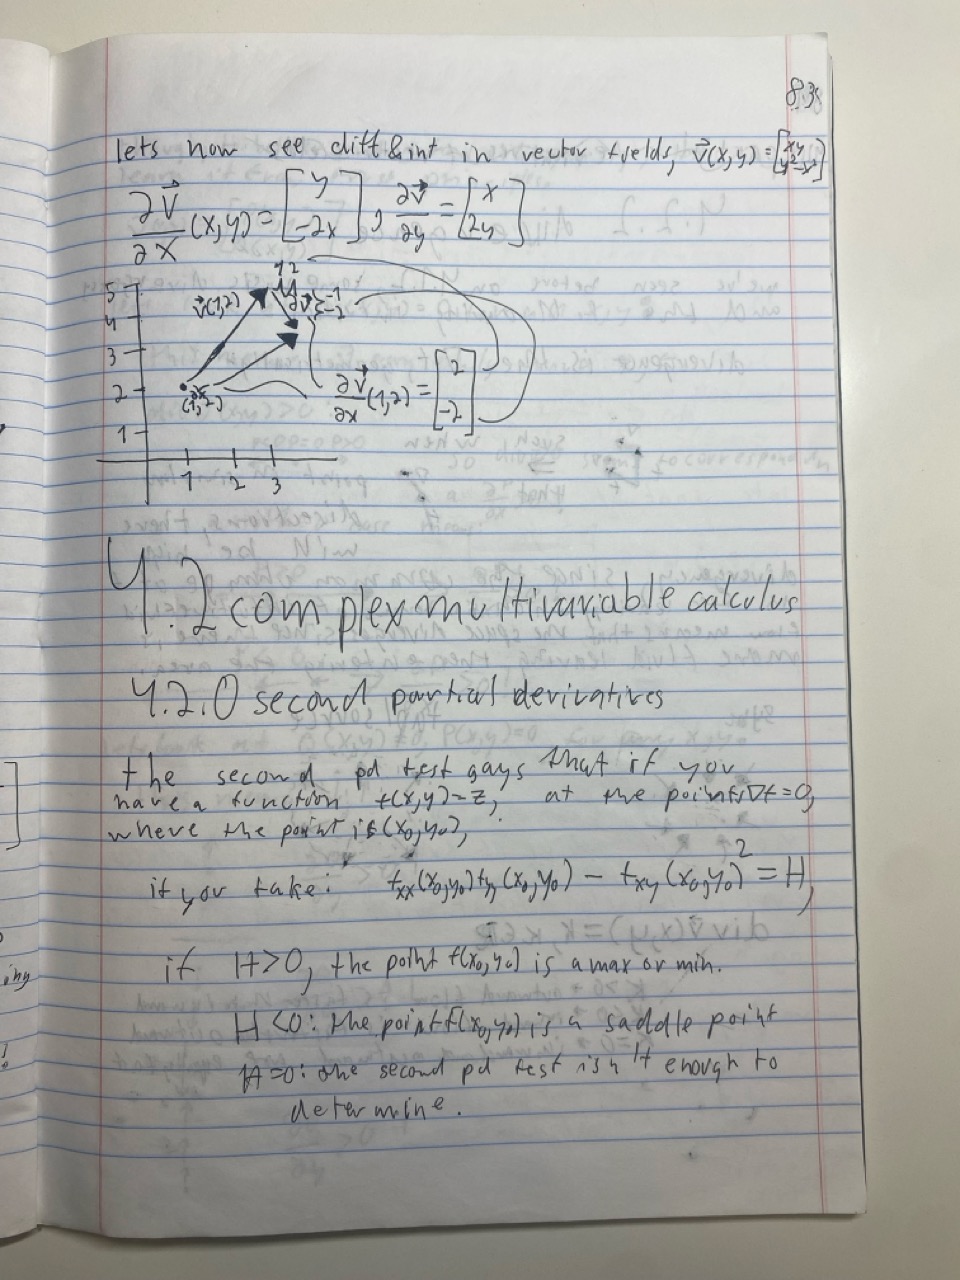 lets now see diff&int in vector fields, v⃗(x,y) = [xy y²-x²]
∂v⃗/∂x (x,y) = [y -2x], ∂v⃗/∂y = [x 2y]
5
4
3
2
1
v⃗(1,2)
(1,2)
∂v⃗/∂x (1,2) = [2 -2]
1 2 3
4.2 complex multivariable calculus
4.2.0 second partial derivatives
the second pd test says that if you
have a function f(x,y)=z, at the point ∇f=0,
where the point is (x₀,y₀),
if you take: fxx(x₀,y₀)fyy(x₀,y₀) - fxy(x₀,y₀)² = H,
if H>0, the point f(x₀,y₀) is a max or min.
H<0: the point f(x₀,y₀) is a saddle point
H=0: the second pd test isn't enough to
determine.